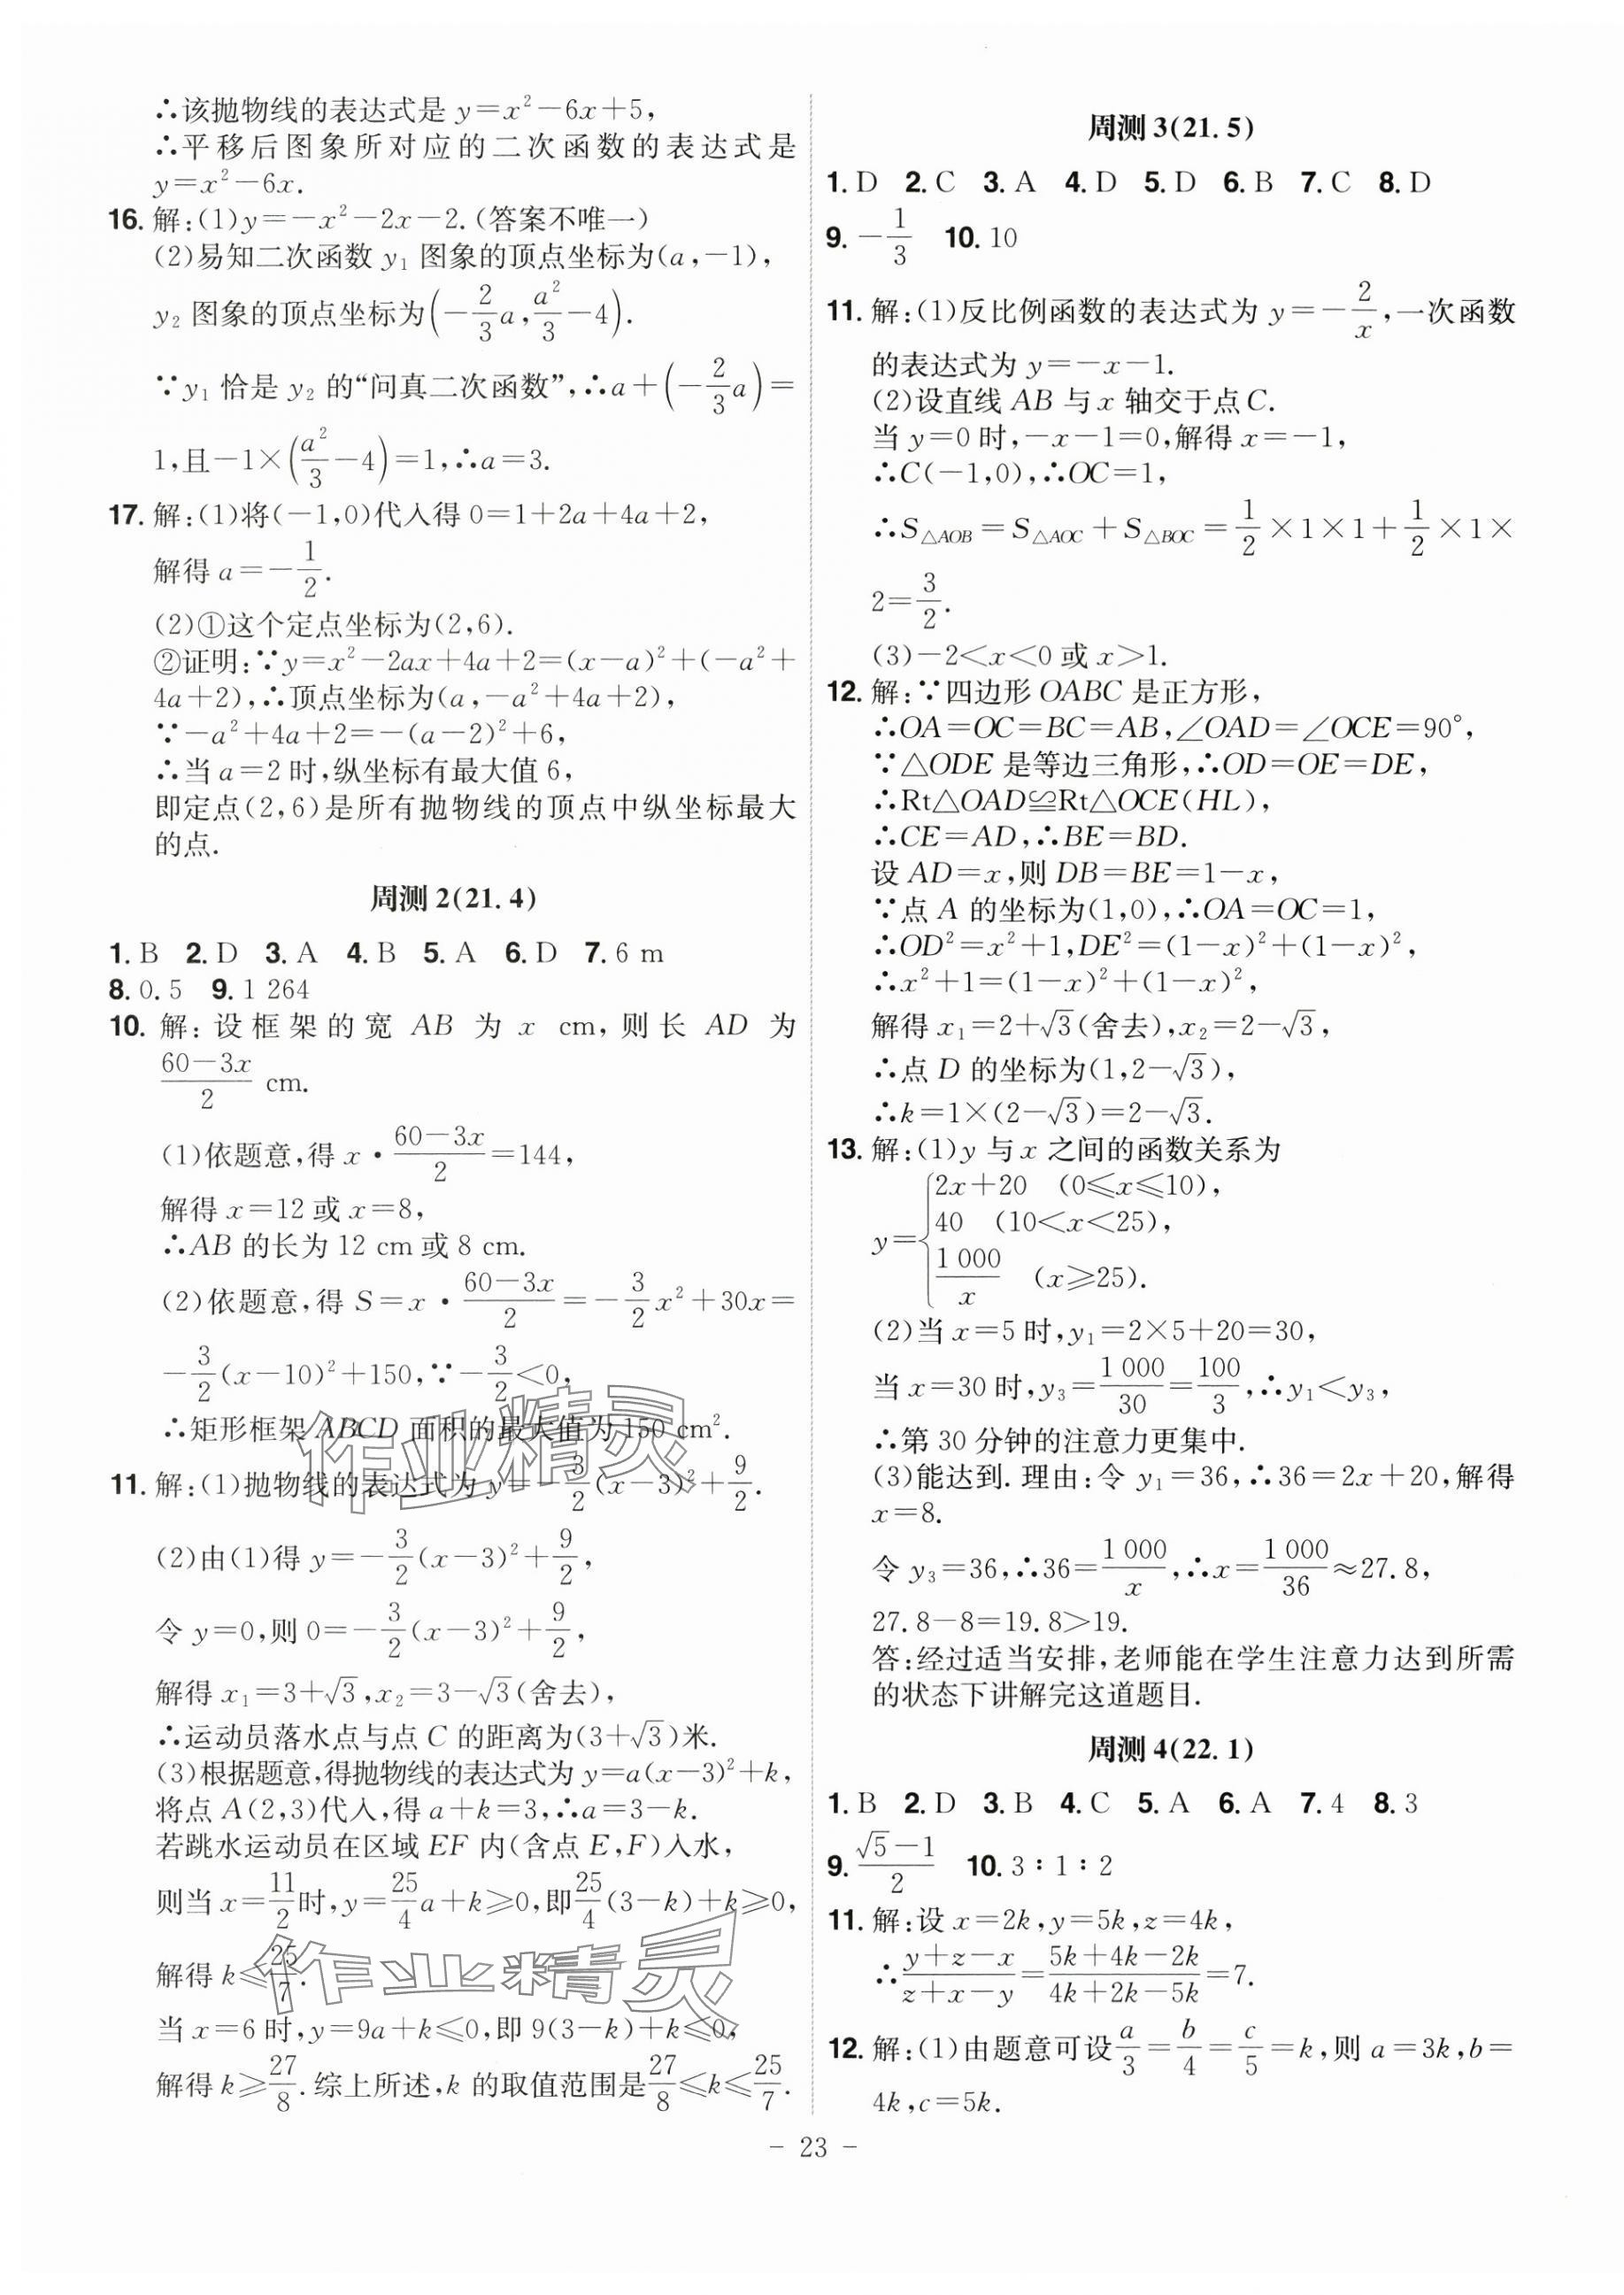 ∴该抛物线的表达式是 y=x²-6x+5,
∴平移后图象所对应的二次函数的表达式是
y=x²-6x.
16. 解:(1)y=-x²-2x-2.(答案不唯一)
(2)易知二次函数 y₁ 图象的顶点坐标为(a,-1),
y₂ 图象的顶点坐标为(-2/3 a, a²/3-4).
∵y₁ 恰是 y₂ 的“问真二次函数”,∴a+(-2/3 a)=
1,且-1×(a²/3-4)=1,∴a=3.
17. 解:(1)将(-1,0)代入得 0=1+2a+4a+2,
解得 a=-1/2.
(2)①这个定点坐标为(2,6).
②证明:∵y=x²-2ax+4a+2=(x-a)²+(-a²+
4a+2),∴顶点坐标为(a,-a²+4a+2),
∵-a²+4a+2=-(a-2)²+6,
∴当 a=2 时,纵坐标有最大值 6,
即定点(2,6)是所有抛物线的顶点中纵坐标最大
的点.
周测 2(21.4)
1. B 2. D 3. A 4. B 5. A 6. D 7. 6 m
8. 0.5 9. 1 264
10. 解:设框架的宽 AB 为 x cm,则长 AD 为
(60-3x)/2 cm.
(1)依题意,得 x·(60-3x)/2=144,
解得 x=12 或 x=8,
∴AB 的长为 12 cm 或 8 cm.
(2)依题意,得 S=x·(60-3x)/2=-3/2 x²+30x=
-3/2(x-10)²+150,∵-3/2<0,
∴矩形框架 ABCD 面积的最大值为 150 cm².
11. 解:(1)抛物线的表达式为 y=-3/2(x-3)²+9/2.
(2)由(1)得 y=-3/2(x-3)²+9/2,
令 y=0,则 0=-3/2(x-3)²+9/2,
解得 x₁=3+√3,x₂=3-√3(舍去),
∴运动员落水点与点 C 的距离为(3+√3)米.
(3)根据题意,得抛物线的表达式为 y=a(x-3)²+k,
将点 A(2,3)代入,得 a+k=3,∴a=3-k.
若跳水运动员在区域 EF 内(含点 E,F)入水,
则当 x=11/2时,y=25/4 a+k≥0,即25/4(3-k)+k≥0,
解得 k≤25/7.
当 x=6 时,y=9a+k≤0,即 9(3-k)+k≤0,
解得 k≥27/8.综上所述,k 的取值范围是27/8≤k≤25/7.
周测 3(21.5)
1. D 2. C 3. A 4. D 5. D 6. B 7. C 8. D
9. -1/3 10. 10
11. 解:(1)反比例函数的表达式为 y=-2/x,一次函数
的表达式为 y=-x-1.
(2)设直线 AB 与 x 轴交于点 C.
当 y=0 时,-x-1=0,解得 x=-1,
∴C(-1,0),∴OC=1,
∴S△AOB=S△AOC+S△BOC=1/2×1×1+1/2×1×
2=3/2.
(3)-2<x<0 或 x>1.
12. 解:∵四边形 OABC 是正方形,
∴OA=OC=BC=AB,∠OAD=∠OCE=90°,
∵△ODE 是等边三角形,∴OD=OE=DE,
∴Rt△OAD≌Rt△OCE(HL),
∴CE=AD,∴BE=BD.
设 AD=x,则 DB=BE=1-x,
∵点 A 的坐标为(1,0),∴OA=OC=1,
∴OD²=x²+1,DE²=(1-x)²+(1-x)²,
∴x²+1=(1-x)²+(1-x)²,
解得 x₁=2+√3(舍去),x₂=2-√3,
∴点 D 的坐标为(1,2-√3),
∴k=1×(2-√3)=2-√3.
13. 解:(1)y 与 x 之间的函数关系为
2x+20 (0≤x≤10),
y={40 (10<x<25),
1 000/x (x≥25).
(2)当 x=5 时,y₁=2×5+20=30,
当 x=30 时,y₃=1 000/30=100/3,∴y₁<y₃,
∴第 30 分钟的注意力更集中.
(3)能达到.理由:令 y₁=36,∴36=2x+20,解得
x=8.
令 y₃=36,∴36=1 000/x,∴x=1 000/36≈27.8,
27.8-8=19.8>19.
答:经过适当安排,老师能在学生注意力达到所需
的状态下讲解完这道题目.
周测 4(22.1)
1. B 2. D 3. B 4. C 5. A 6. A 7. 4 8. 3
9. (√5-1)/2 10. 3∶1∶2
11. 解:设 x=2k,y=5k,z=4k,
∴(y+z-x)/(z+x-y)=(5k+4k-2k)/(4k+2k-5k)=7.
12. 解:(1)由题意可设a/3=b/4=c/5=k,则 a=3k,b=
4k,c=5k.
- 23 -
作业精灵
作业精灵